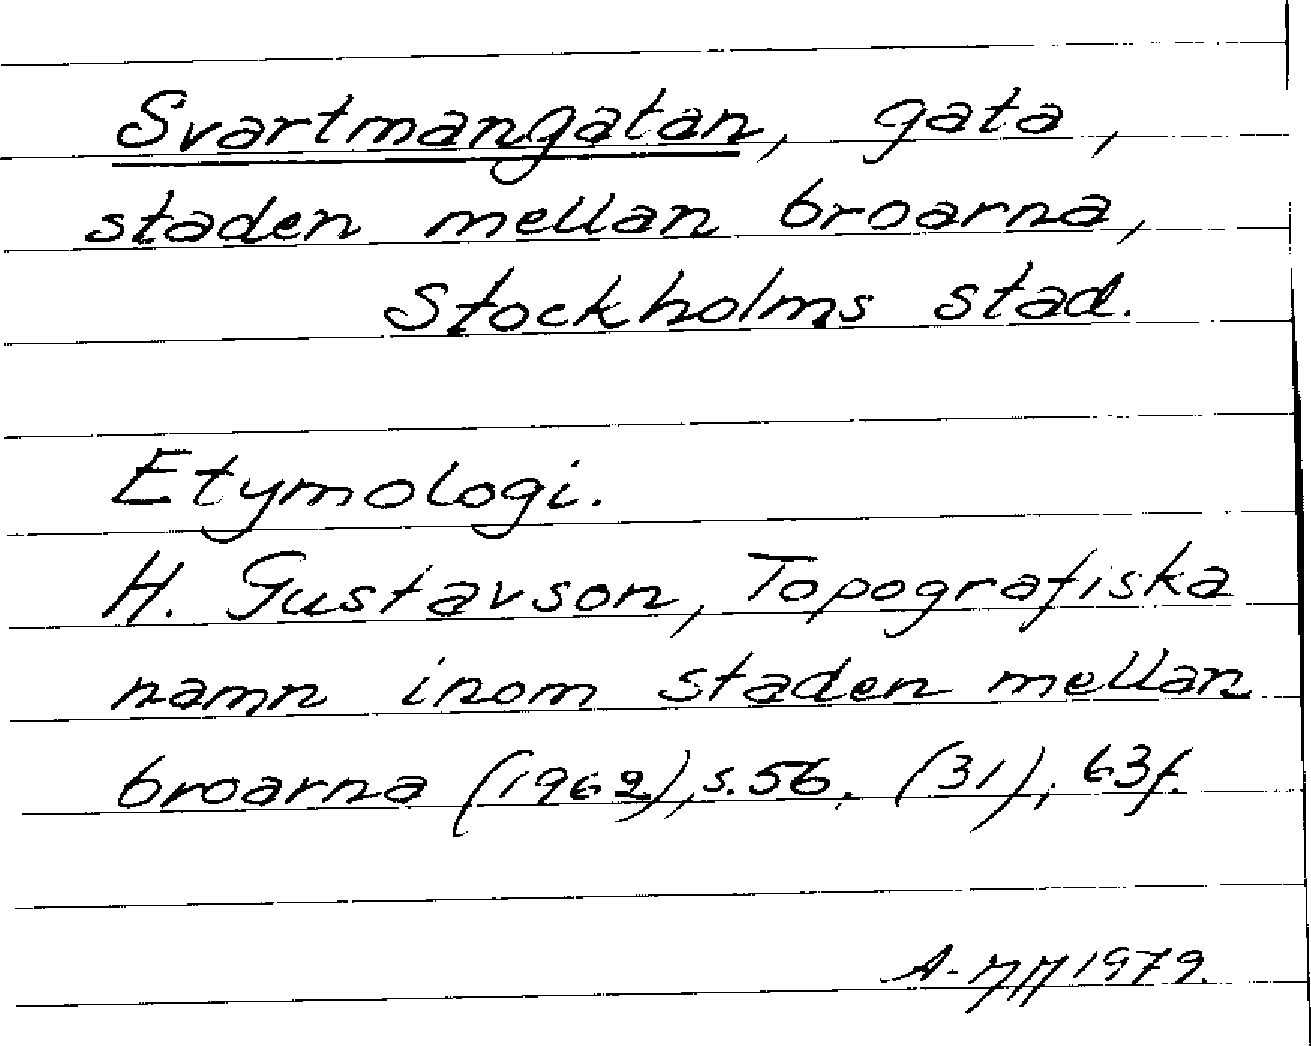 Svartmangatan, gata,
staden mellan broarna,
Stockholms stad.
Etymologi.
H. Gustavson, Topografiska
namn inom staden mellan
broarna (1962), s. 56, (31), 63f.
1979.